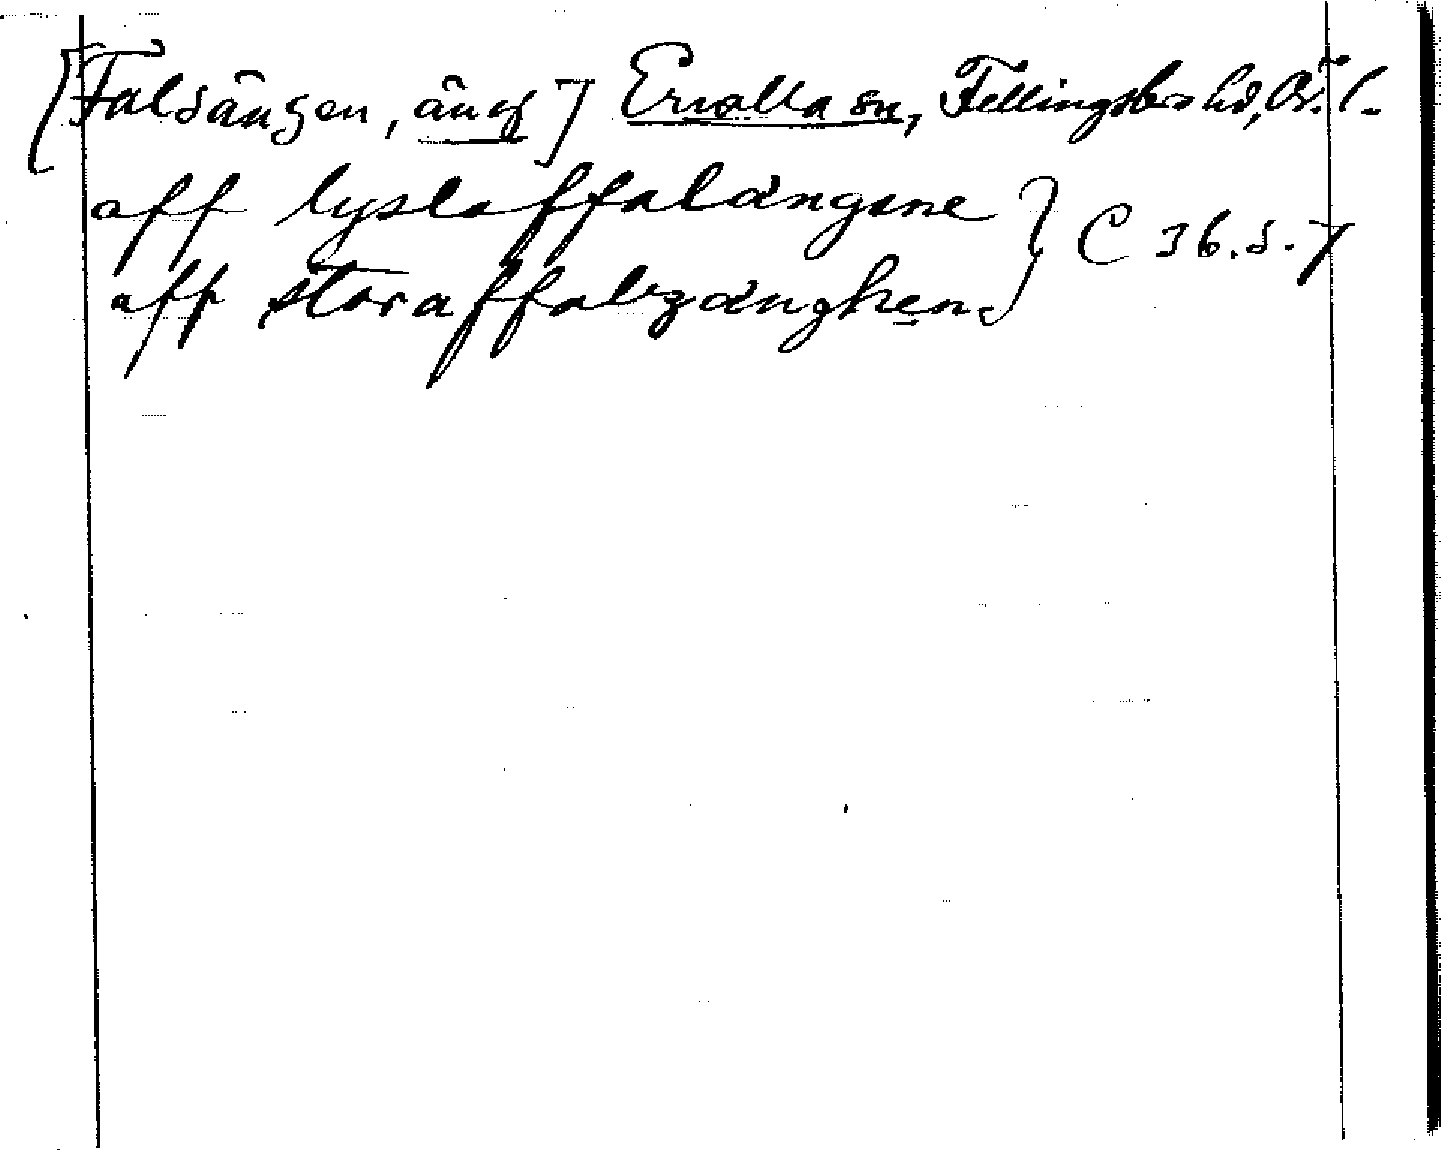 [Falsängen, äng] Ervalla sn, Fellingsbro hd, Ör. l.
aff lyslaffalängene } C 36. s. 7
aff storaffalzänghen